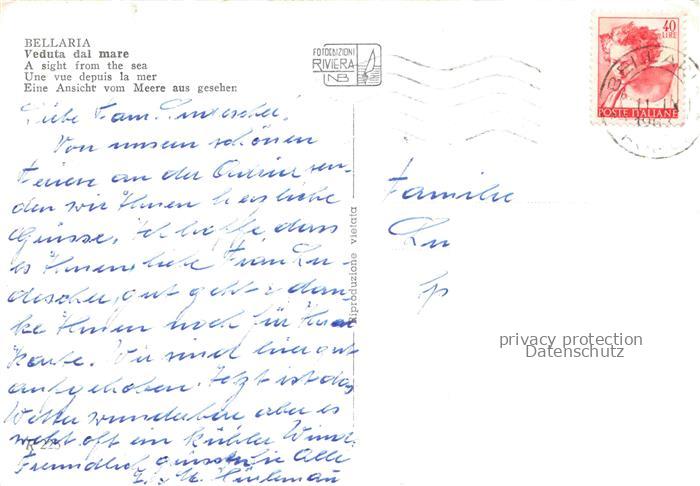 BELLARIA
Veduta dal mare
A sight from the sea
Une vue depuis la mer
Eine Ansicht vom Meere aus gesehen
FOTOEDIZIONI
RIVIERA
NB
40
LIRE
POSTE ITALIANE
Liebe Fam.
Von unsern schönen
Ferien an der Adria sen-
den wir Ihnen herzliche
Grüsse. Ich hoffe dass
es Ihnen liebe Frau Lin-
descher, gut geht & dan-
ke Ihnen noch für Ihre
Karte. Wir sind hier gut
aufgehoben. Jetzt ist das
Wetter wunderbar aber es
weht oft ein kühler Wind.
Freundlich grüsst Sie Alle
Riproduzione vietata
Familie
privacy protection
Datenschutz